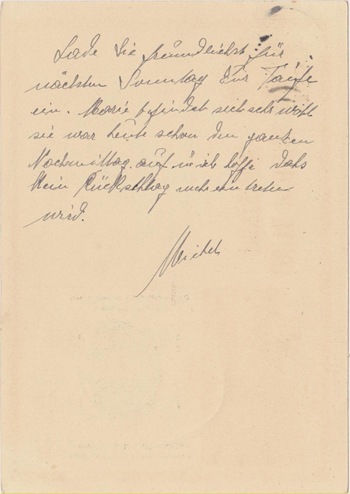 Lade Sie freundlichst für
nächsten Sonntag zur Taufe
ein. Marie befindet sich sehr wohl
sie war heute schon den ganzen
Nachmittag auf u ich hoffe dass
kein Rückschlag mehr eintreten
wird.